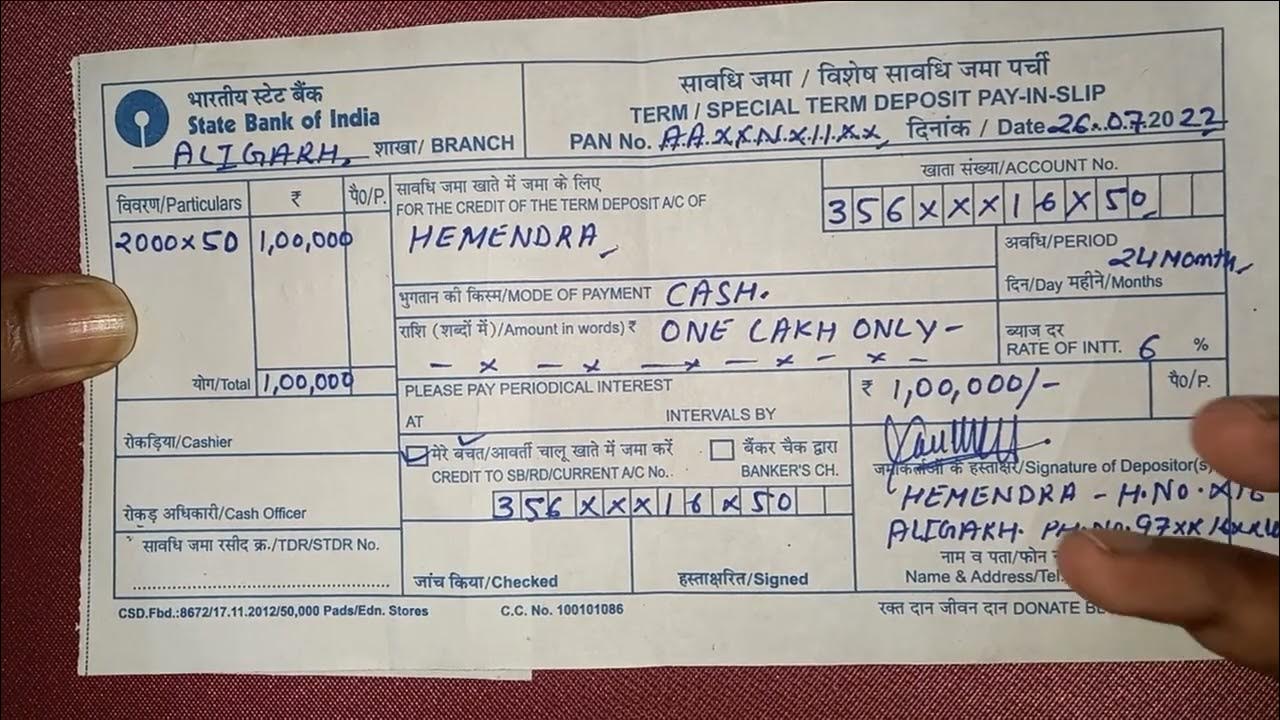 भारतीय स्टेट बैंक
State Bank of India
ALIGARH, शाखा/ BRANCH
सावधि जमा / विशेष सावधि जमा पर्ची
TERM / SPECIAL TERM DEPOSIT PAY-IN-SLIP
PAN No. A.A.X.X.N.X.I.I.X.X, दिनांक / Date 26.07.2022
विवरण/Particulars ₹ पै0/P.
2000x50 1,00,000
योग/Total 1,00,000
सावधि जमा खाते में जमा के लिए
FOR THE CREDIT OF THE TERM DEPOSIT A/C OF
HEMENDRA,
खाता संख्या/ACCOUNT No.
356XXX16X50
अवधि/PERIOD
24 Month,
दिन/Day महीने/Months
भुगतान की किस्म/MODE OF PAYMENT CASH.
राशि (शब्दों में)/Amount in words) ₹ ONE LAKH ONLY-
- x - x - x - x - x -
ब्याज दर
RATE OF INTT. 6 %
PLEASE PAY PERIODICAL INTEREST
AT INTERVALS BY
₹ 1,00,000/- पै0/P.
रोकड़िया/Cashier
मेरे बचत/आवर्ती चालू खाते में जमा करें
CREDIT TO SB/RD/CURRENT A/C No..
बैंकर चैक द्वारा
BANKER'S CH.
356XXX16X50
जमाकर्ताओं के हस्ताक्षर/Signature of Depositor(s)
HEMENDRA - H.NO. X16
ALIGARH. PH.NO. 97XX
नाम व पता/फोन
Name & Address/Tel.
रोकड़ अधिकारी/Cash Officer
सावधि जमा रसीद क्र./TDR/STDR No.
जांच किया/Checked
हस्ताक्षरित/Signed
CSD.Fbd.:8672/17.11.2012/50,000 Pads/Edn. Stores
C.C. No. 100101086
रक्त दान जीवन दान DONATE